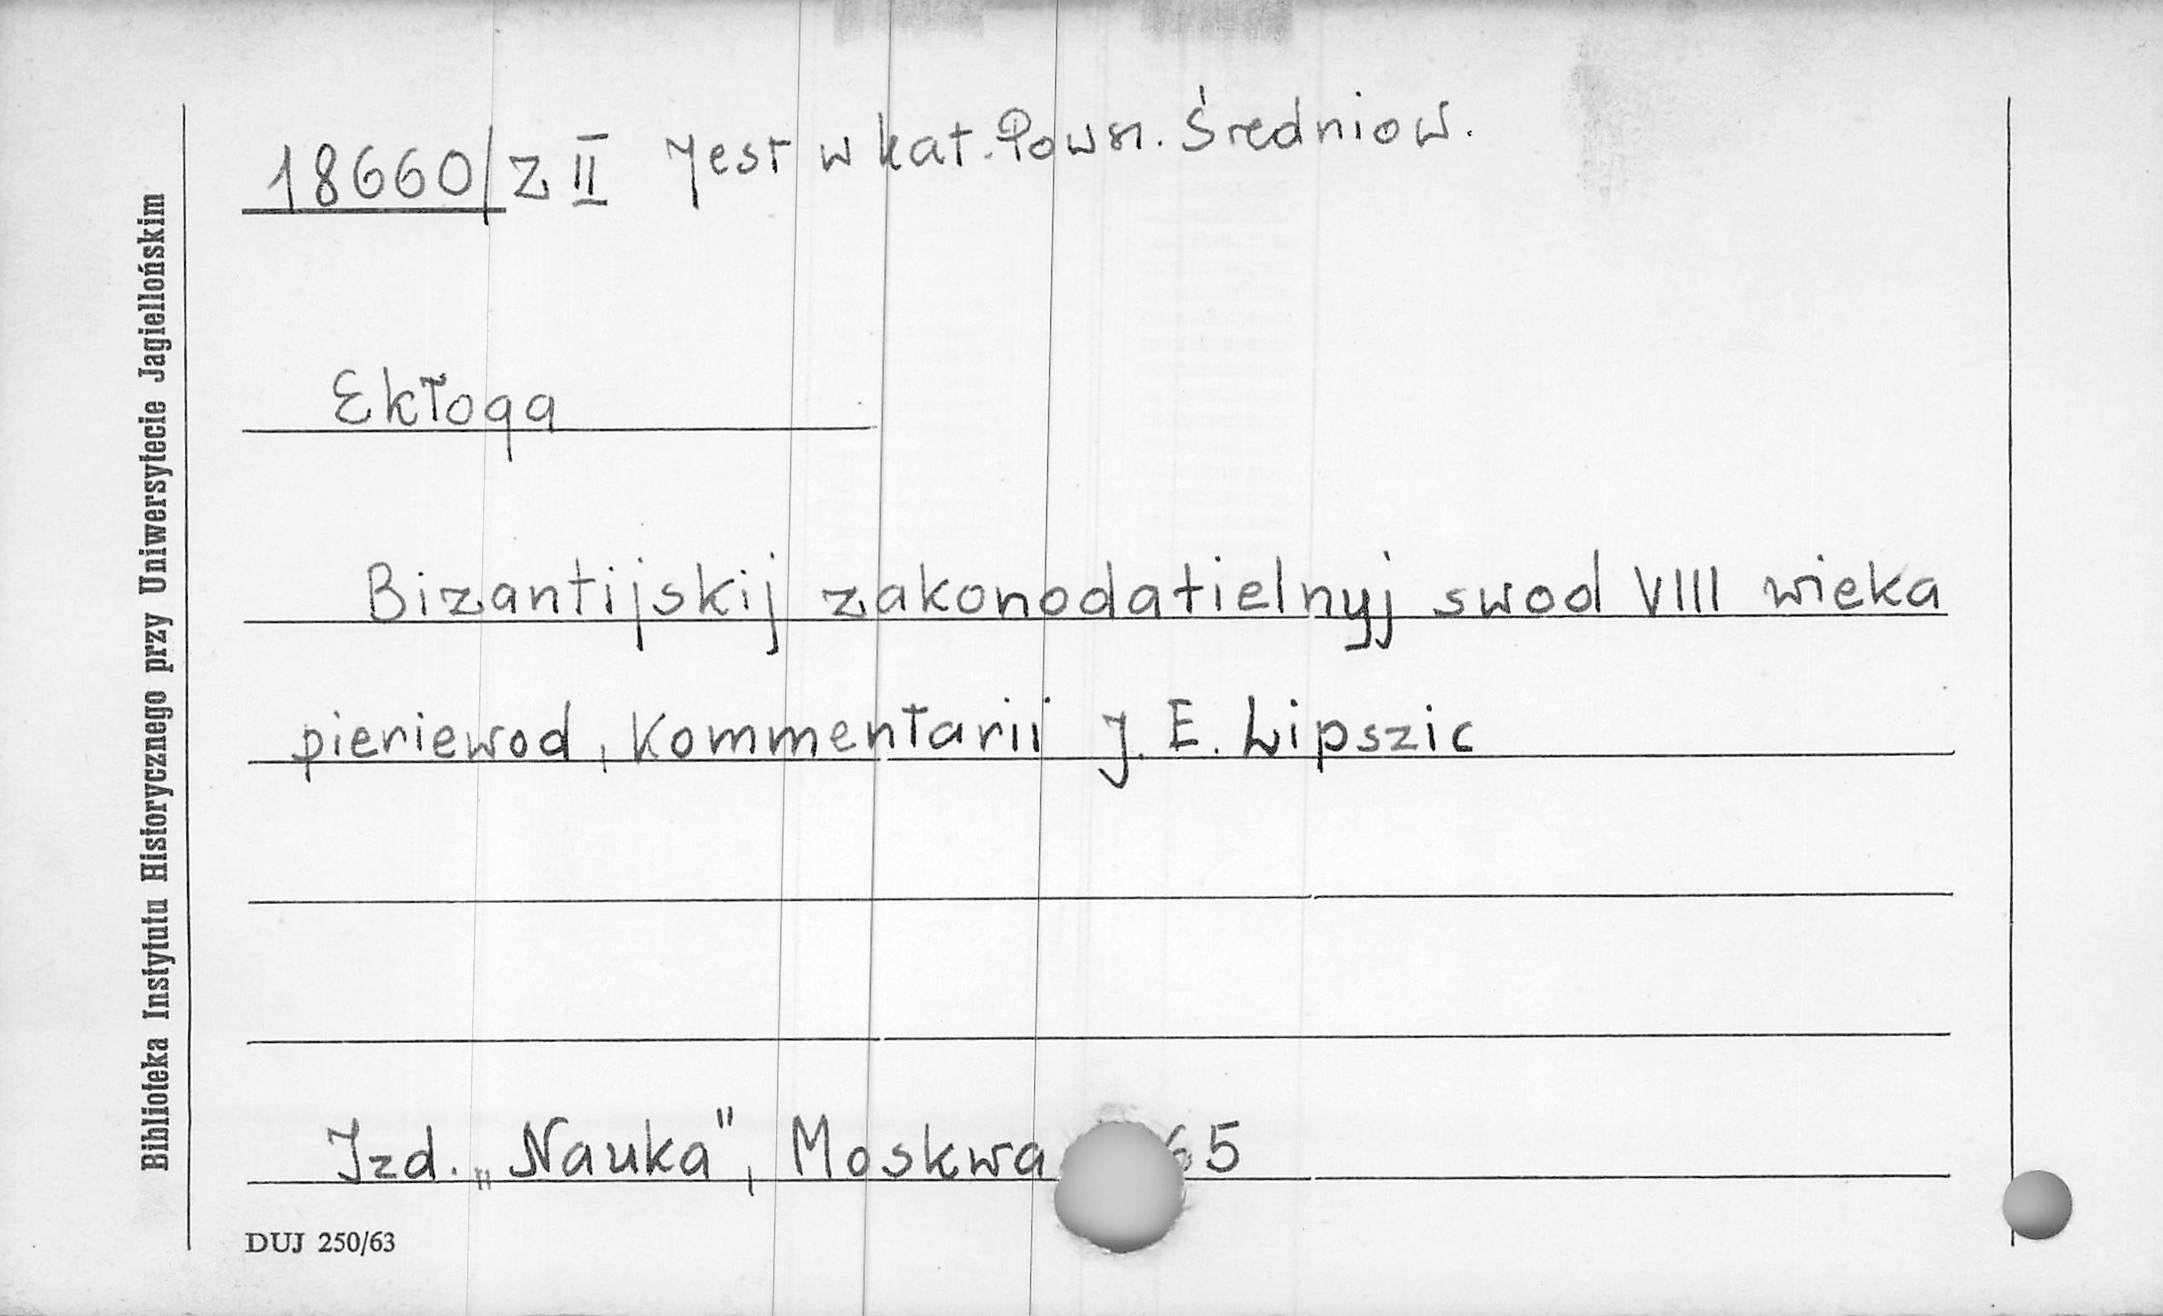 18660/Z II Jest w kat. Pow. Średniow.
Ekłoga
Bizantijskij zakonodatielnyj swod VIII wieka
pieriewod, kommentarii J. E. Lipszic
Izd. „Nauka", Moskwa 65
DUJ 250/63
Biblioteka Instytutu Historycznego przy Uniwersytecie Jagiellońskim